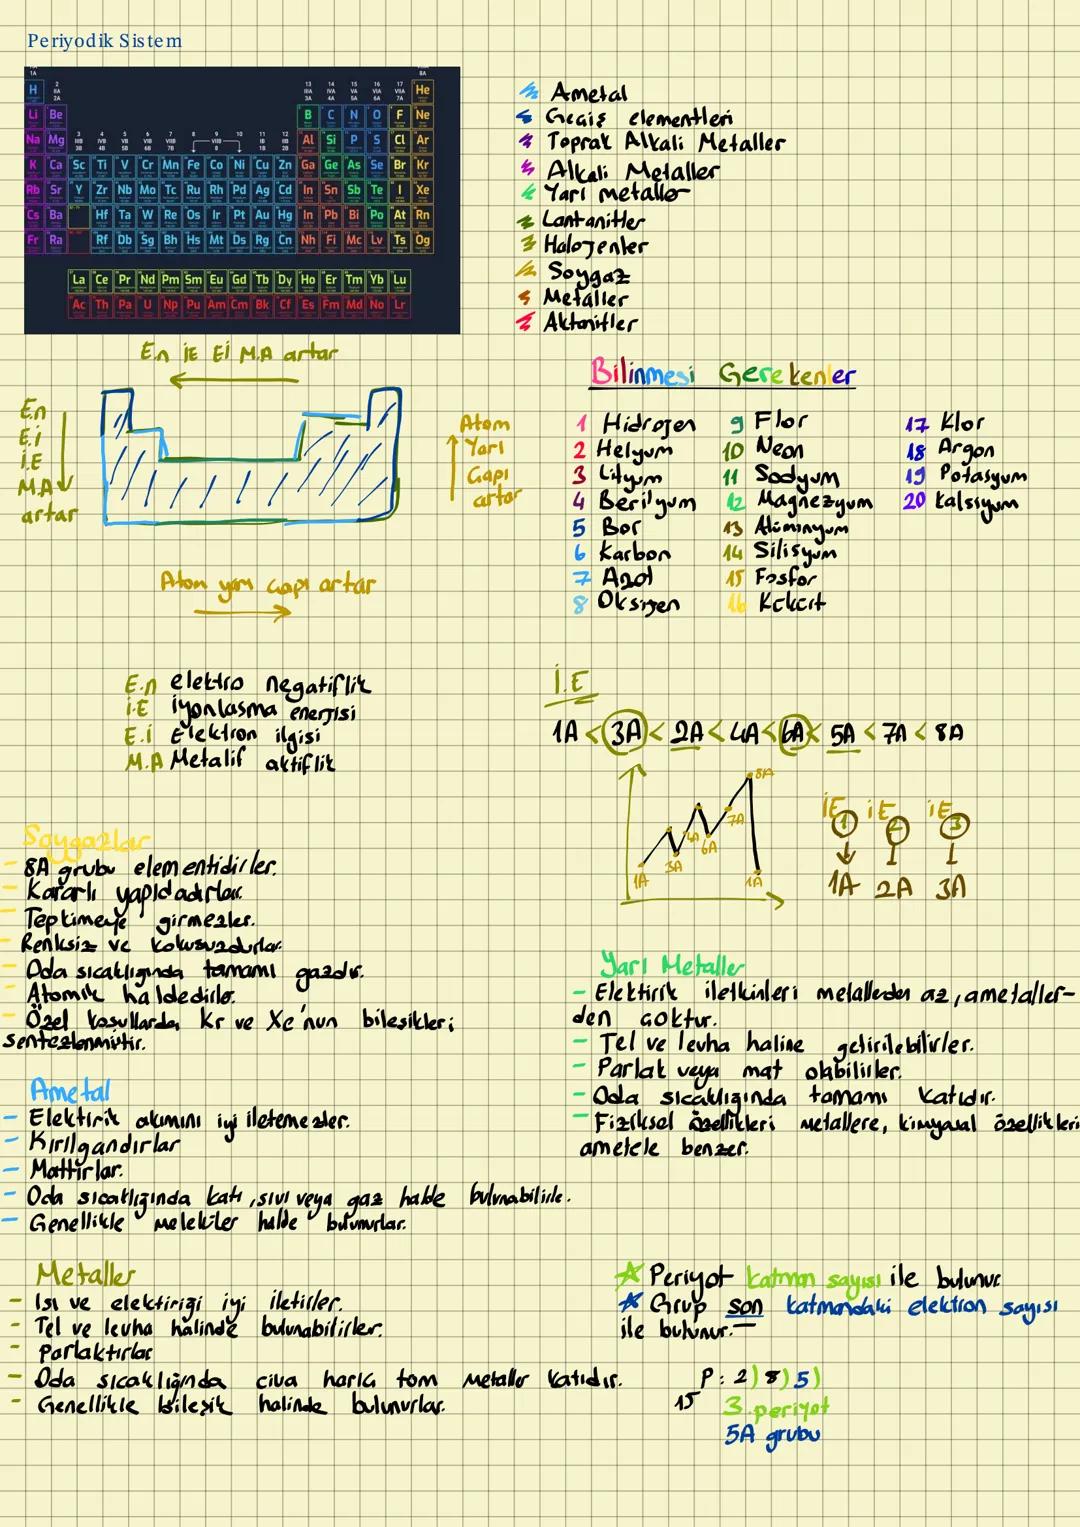 Periyodik Sistem
1A
8A
2 IIA 2A
13 IIIA 3A
14 IVA 4A
15 VA 5A
16 VIA 6A
17 VIIA 7A
H He
Li Be B C N O F Ne
3 IIIB 3B
4 IVB 4B
5 VB 5B
6 VIB 6B
7 VIIB 7B
8 9 10
VIIIB
11 IB 1B
12 IIB 2B
Na Mg Al Si P S Cl Ar
K Ca Sc Ti V Cr Mn Fe Co Ni Cu Zn Ga Ge As Se Br Kr
Rb Sr Y Zr Nb Mo Tc Ru Rh Pd Ag Cd In Sn Sb Te I Xe
Cs Ba Hf Ta W Re Os Ir Pt Au Hg In Pb Bi Po At Rn
Fr Ra Rf Db Sg Bh Hs Mt Ds Rg Cn Nh Fi Mc Lv Ts Og
La Ce Pr Nd Pm Sm Eu Gd Tb Dy Ho Er Tm Yb Lu
Ac Th Pa U Np Pu Am Cm Bk Cf Es Fm Md No Lr
Ametal
Geçiş elementleri
Toprak Alkali Metaller
Alkali Metaller
Yarı metaller
Lantanitler
Halojenler
Soygaz
Metaller
Aktanitler
E.n İE Eİ M.A artar
E.n
E.i
İ.E
M.A
artar
Atom
Yarı
Çapı
artar
Atom yarı çapı artar
Bilinmesi Gerekenler
1 Hidrojen
2 Helyum
3 Lityum
4 Berilyum
5 Bor
6 Karbon
7 Azot
8 Oksijen
9 Flor
10 Neon
11 Sodyum
12 Magnezyum
13 Alüminyum
14 Silisyum
15 Fosfor
16 Kükürt
17 Klor
18 Argon
19 Potasyum
20 kalsiyum
E.n elektro negatiflik
İ.E iyonlasma energisi
E.İ Elektron ilgisi
M.A Metalif aktiflik
İ.E
1A < 3A < 2A < 4A < 6A < 5A < 7A < 8A
8A
7A
4A
6A
3A
1A
1A
İE1 İE2 İE3
1A 2A 3A
Soygazlar
- 8A grubu elementidirler.
- Kararlı yapıdadırlar.
- Tepkimeye girmezler.
- Renksiz ve kokusuzdurlar.
- Oda sıcaklığında tamamı gazdır.
- Atomik haldedirler.
- Özel koşullarda Kr ve Xe'nun bileşikleri
sentezlenmiştir.
Ametal
- Elektirik akımını iyi iletemezler.
- Kırılgandırlar
- Mattırlar.
- Oda sıcaklığında katı, sıvı veya gaz halde bulunabilirler.
- Genellikle meleküler halde bulunurlar.
Metaller
- Isı ve elektiriği iyi iletirler.
- Tel ve levha halinde bulunabilirler.
- parlaktırlar
- Oda sıcaklığında civa hariç tüm metaller katıdır.
- Genellikle bileşik halinde bulunurlar.
Yarı Metaller
- Elektirik iletkinleri metallerden az, ametaller-
den çoktur.
- Tel ve levha haline getirilebilirler.
- Parlak veya mat olabilirler.
- Oda sıcaklığında tamamı katıdır.
- Fiziksel özellikleri metallere, kimyasal özellikleri
ametele benzer.
Periyot katman sayısı ile bulunur
Grup son katmandaki elektron sayısı
ile bulunur.
15P: 2) 8) 5)
3. periyot
5A grubu